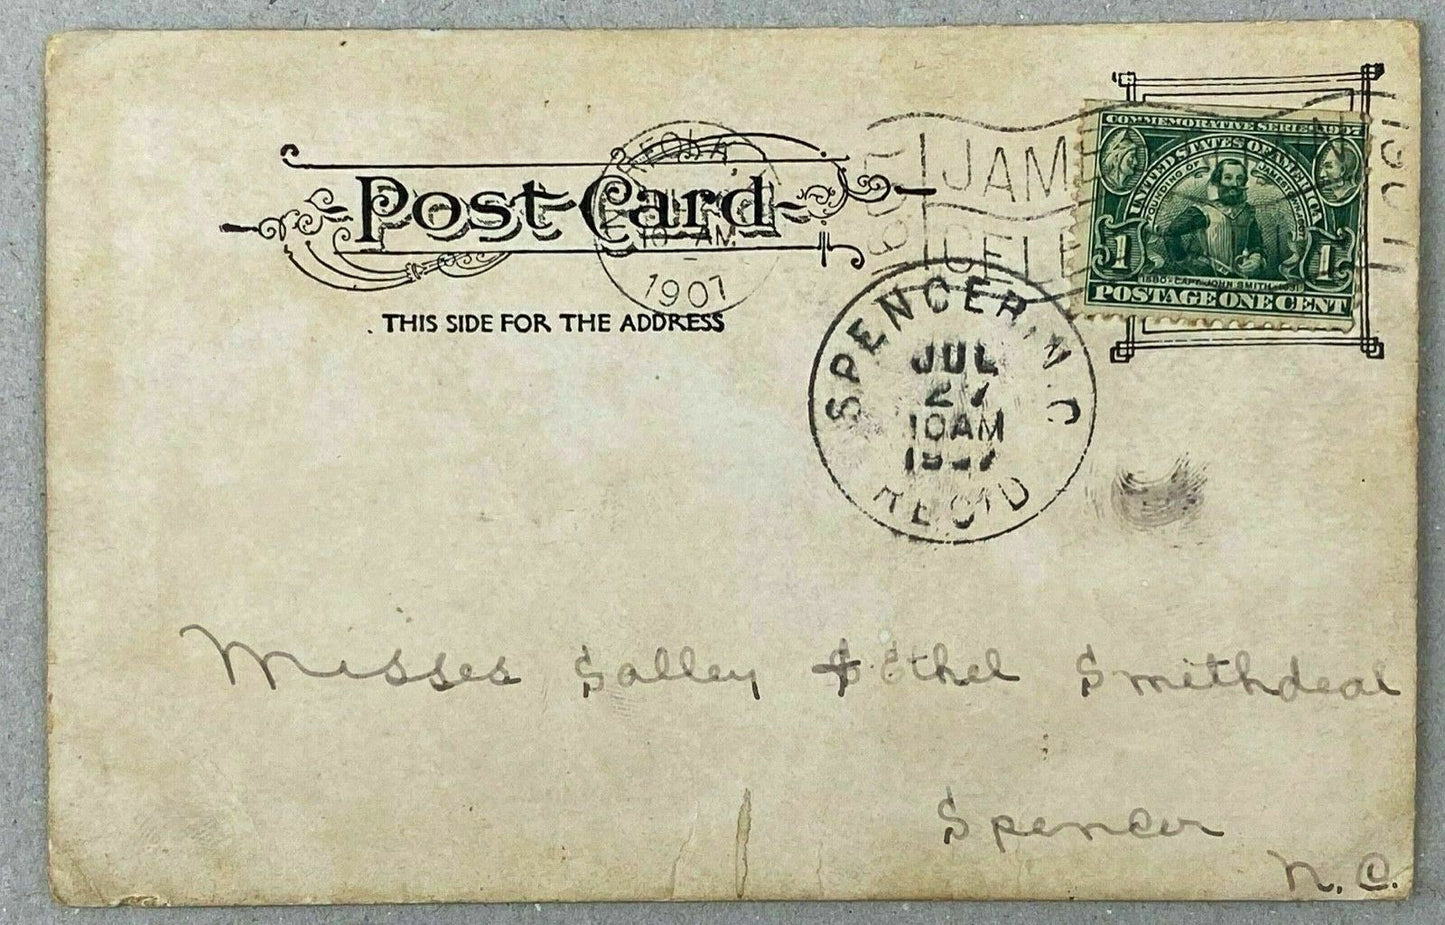 COMMEMORATIVE SERIES 1907
UNITED STATES OF AMERICA
FOUNDING OF JAMESTOWN
1 1
1580 · CAPT. JOHN SMITH · 1631
POSTAGE ONE CENT
1607 1907
JAME
CELE
Post Card
AM
1907
THIS SIDE FOR THE ADDRESS
SPENCER, N.C.
JUL
27
10AM
1907
REC'D
Misses Salley & Ethel Smithdeal
Spencer
N.C.